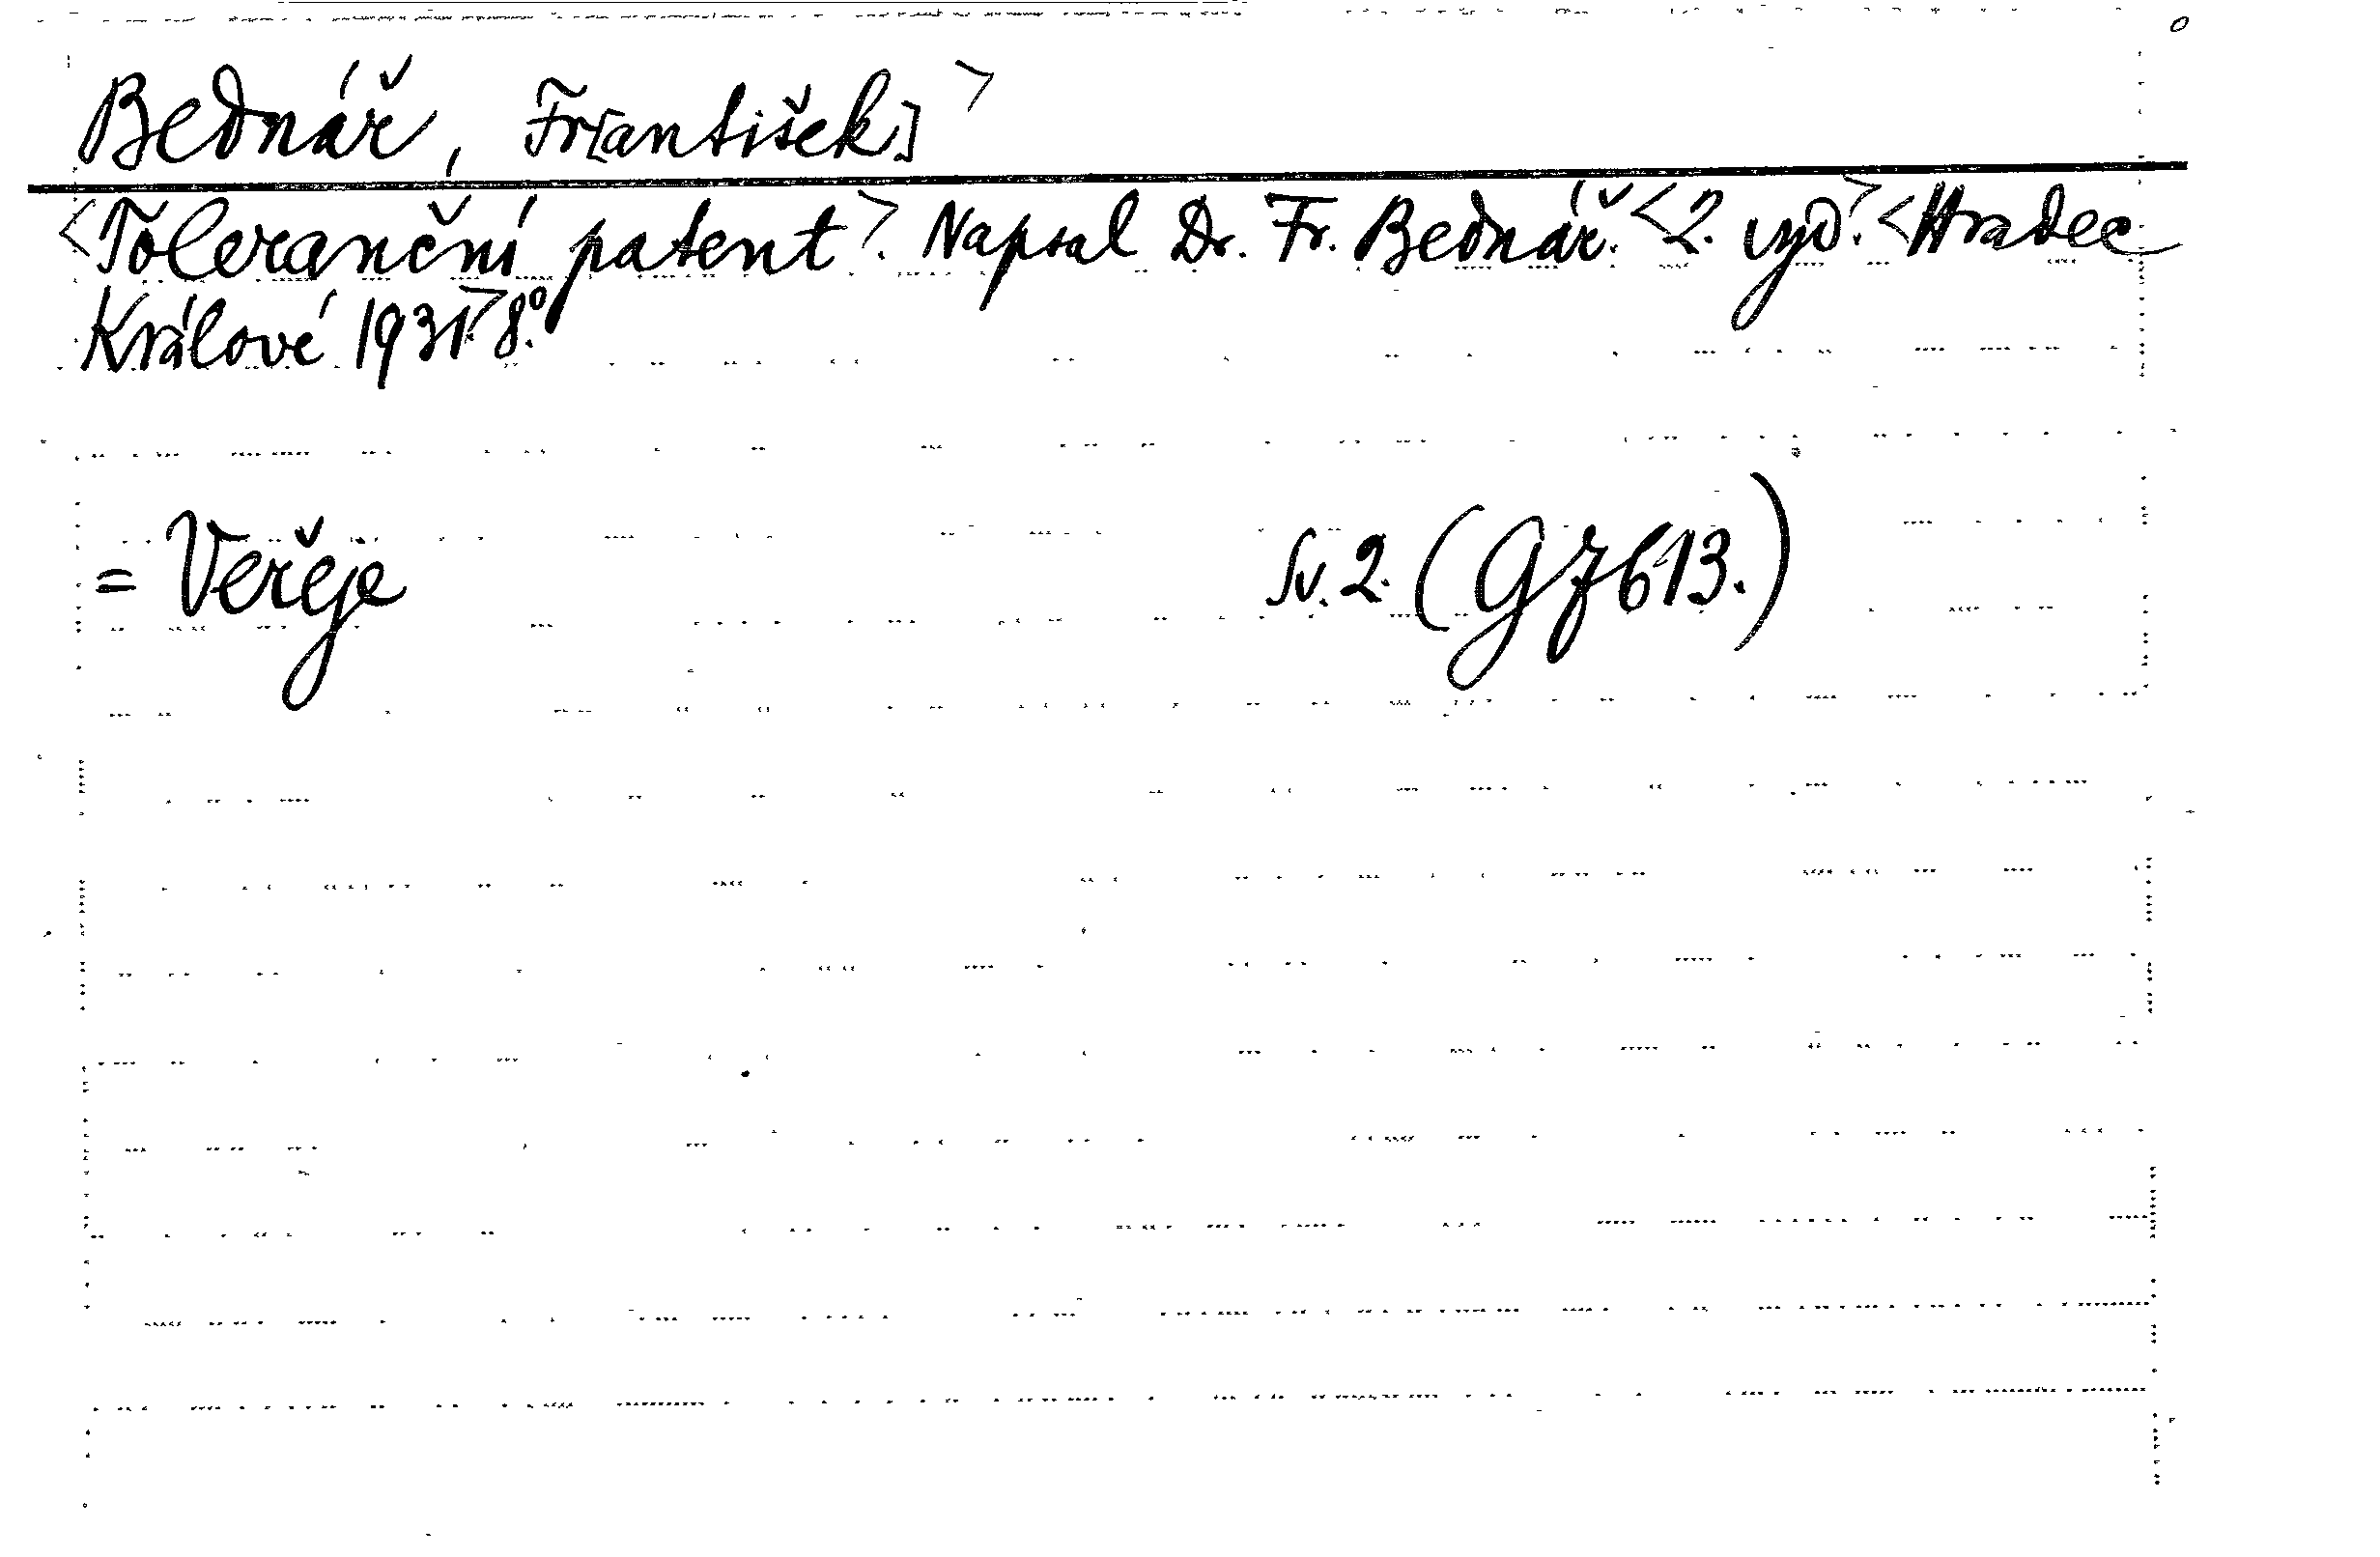 Bednář, Fr[antišek] >
<Toleranční patent>. Napsal Dr. Fr. Bednář. <2. vyd.> <Hradec
Králové 1931.> 8°.
= Veřeje Sv. 2. (G 7613.)